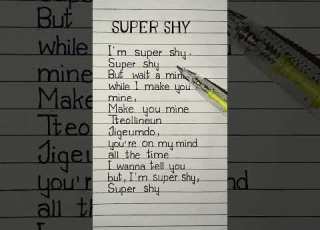 SUPER SHY
I'm super shy,
Super shy
But wait a min
while I make you
mine,
Make you mine
Tteollineun
Jigeumdo,
you're on my mind
all the time
I wanna tell you
but, I'm super shy,
Super shy